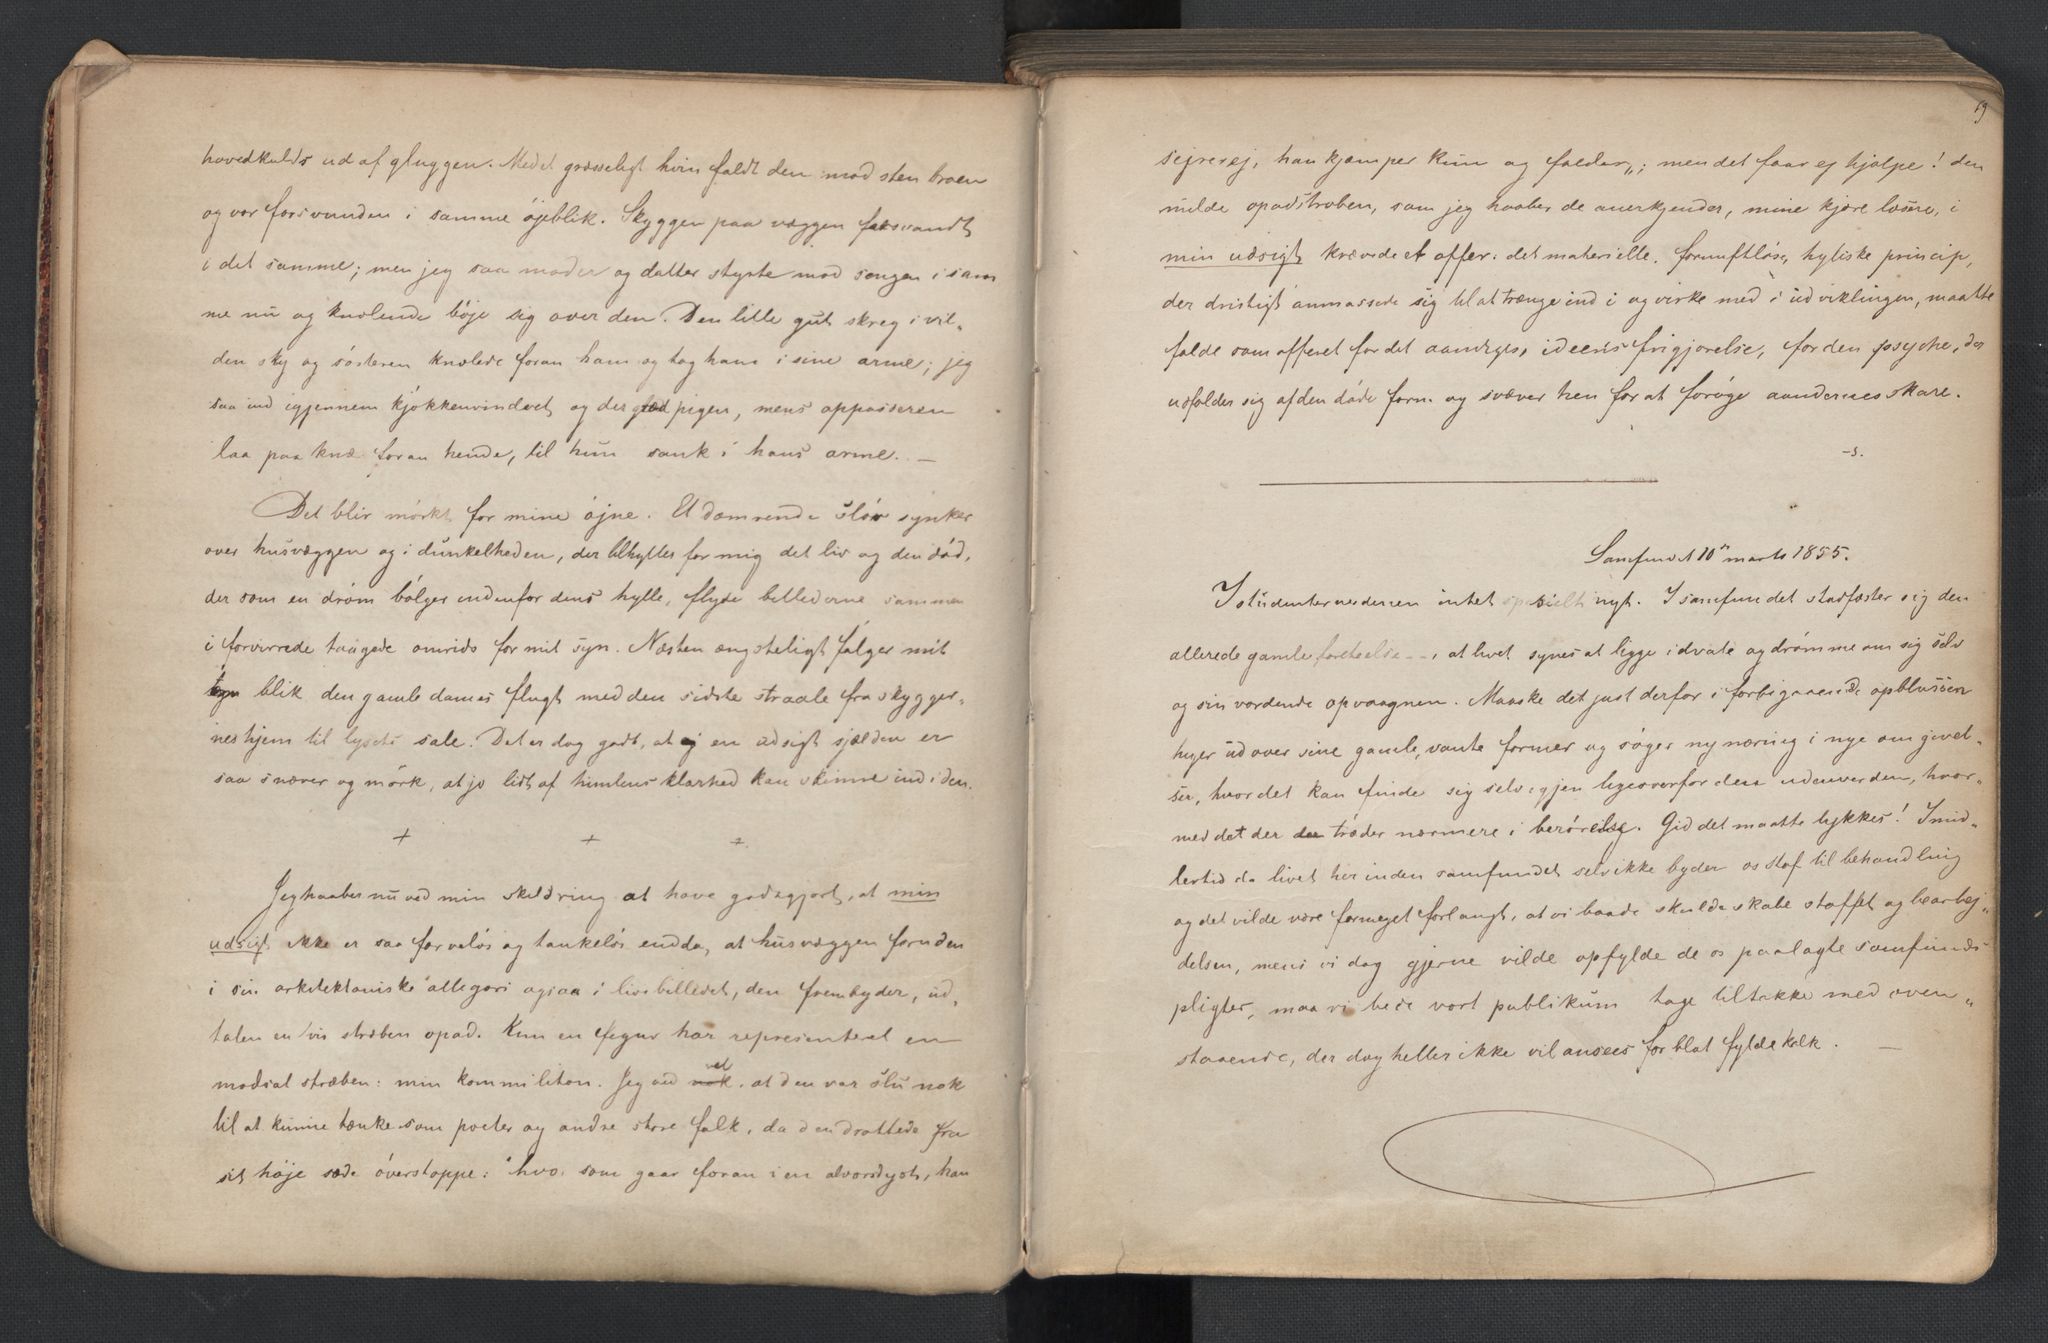 hovedkulds ud af gluggen. Med et græsseligt hvin faldt den mod sten broen
og var forsvunden i samme øjeblik. Skyggen paa væggen forsvandt
i det samme; men jeg saa moder og datter styrte mod sengen i sam
me nu og knælende bøje sig over den. Den lille gut skreg i vil-
den sky og søsteren knælede foran ham og tog ham i sine arme; jeg
saa ind igjennem kjøkkenvinduet og der stod pigen, mens oppasseren
laa paa knæ foran hende, til hun sank i hans arme. —
Det blir mørkt for mine øjne. Et dæmrende slør synker
over husvæggen og i dunkelheden, der tilhyller for mig det liv og den død,
der som en drøm bølger indenfor dens hylle, flyde billederne sammen
i forvirrede taagede omrids for mit syn. Næsten ængsteligt følger mit
blik den gamle dames flugt med den sidste straale fra skygger-
nes hjem til lysets sale. Det er dog godt, at ej en udsigt sjælden er
saa snæver og mørk, at jo lidt af himlens klarhed kan skinne ind i den.
+ + +
Jeg haaber nu ved min skildring at have godtgjort, at min
udsigt ikke er saa farveløs og tankeløs endda, at husvæggen foruden
i sin arkitektoniske allegori ogsaa i livsbilledet, den frembyder, ud-
taler en vis stræben opad. Kun en figur har representeret en
modsat stræben: min kommiliton. Jeg ved nok vel at den var slu nok
til at kunne tænke som poeter og andre store folk, da den drattede fra
sit høje sæde overstoppe: "hvo, som gaar foran i en alvorsdyst, han
19
sejrer ej, han kjæmper kun og falder"; men det faar ej hjælpe! den
milde opadstræben, som jeg haaber de anerkjender, mine kjære læsere, i
min udsigt krævede et offer: det materielle, fornuftløse, hyliske princip,
der dristigt anmassede sig til at trænge ind i og virke med i udviklingen, maatte
falde som offeret for det aandiges, ideens frigjørelse, for den psyche, der
udfolder sig af den døde form og svæver hen for at forøge aandernes skare.
-s.
Samfundet 10de marts 1855.
I studenterverdenen intet specielt nyt. I samfundet stadfæster sig den
allerede gamle foreteelse --, at livet synes at ligge i dvale og drømme om sig selv
og sin vordende opvaagnen. Maaske det just derfor i forbigaaende opblussen
higer ud over sine gamle, vante former og søger ny næring i nye omgivel-
ser, hvor det kan finde sig selv igjen ligeoverfor den udenverden, hvor-
med det der der træder nærmere i berørelse. Gid det maatte lykkes! Imid-
lertid da livet her inden samfundet selv ikke byder os stof til behandling
og det vilde være formeget forlangt, at vi baade skulde skabe stoffet og bearbej-
delsen, mens vi dog gjerne vilde opfylde de os paalagte samfunds
pligter, maa vi bede vort publikum tage tiltakke med oven-
staaende, der dog heller ikke vil ansees for blot fyldekalk. —